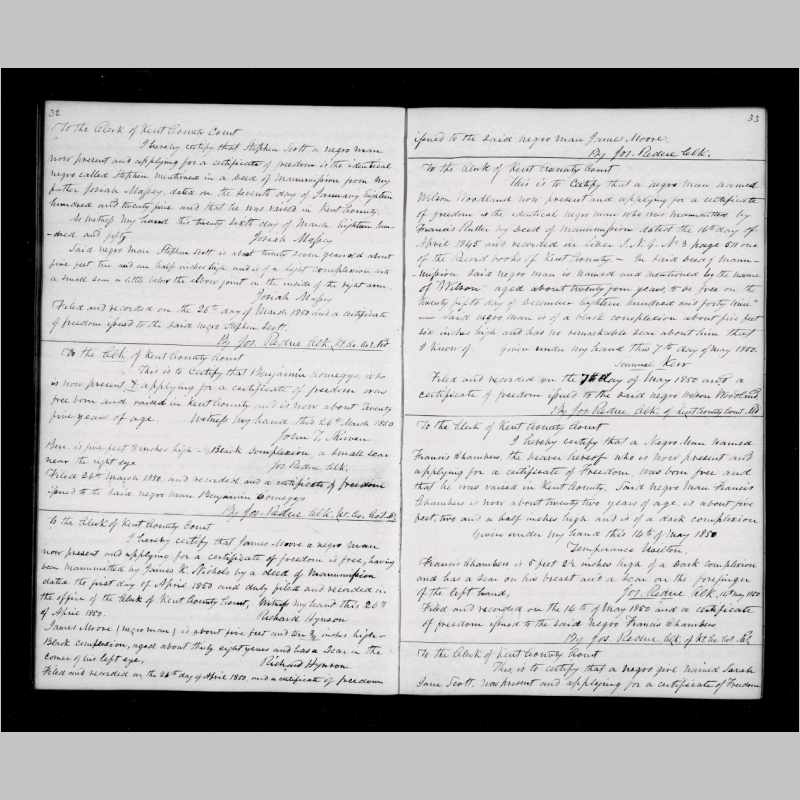 32
To the Clerk of Kent County Court
I hereby certify that Stephen Scott a negro man
now present and applying for a certificate of freedom is the identical
negro called Stephen mentioned in a deed of manumission from my
father Josiah Massey, dated on the seventh day of January Eighteen
hundred and twenty five and that he was raised in Kent County.
As witness my hand this twenty sixth day of March Eighteen hun-
dred and fifty
Josiah Massey
Said negro man Stephen Scott is about twenty seven years old about
five feet ten and one half inches high and is of a light complexion with
a small scar a little below the elbow joint on the inside of the right arm.
Josiah Massey
Filed and recorded on the 26th day of March 1850 and a certificate
of freedom issued to the said negro Stephen Scott.
By Jos. Redue Clk. Kt. Co. Cot. Md
To the Clk. of Kent County Court
This is to Certify that Benjamin Comegys who
is now present & applying for a certificate of freedom was
free born and raised in Kent County and is now about twenty
five years of age. Witness my hand this 26th March 1850
John T. Skirven
Ben: is five feet 8 inches high - Black Complexion, a small scar
near the right eye
Jos Redue Clk.
Filed 26th March 1850. and recorded and a certificate of freedom
issued to the said negro man Benjamin Comegys
By Jos. Redue Clk. Kt. Co. Cot. Md
To the Clerk of Kent County Court
I hereby certify that James Moore a negro man
now present and applying for a certificate of freedom is free, having
been manumitted by James K. Nichols by a deed of manumission
dated the first day of April 1850 and duly filed and recorded in
the office of the Clerk of Kent County Court, Witness my hand this 26th
of April 1850.
Richard Hynson
James Moore (negro man) is about five feet and inches high -
Black complexion, aged about thirty eight years and has a scar in the
corner of his left eye,
Richard Hynson
Filed and recorded on the 26th day of April 1850, and a certificate of freedom
33
issued to the said negro man James Moore.
By Jos. Redue Clk.
To the Clerk of Kent County Court
This is to Certify that a negro man named
Wilson Woodland now present and applying for a certificate
of freedom is the identical negro man who was manumitted by
Francis Rutter by deed of manumission dated the 16th day of
April 1845 and recorded in Liber J.N.G. No 3 page 511 one
of the Record books of Kent County - In said deed of manu-
mission said negro man is named and mentioned by the name
of "Wilson" aged about twenty four years, to be free on the
twenty fifth day of December Eighteen hundred and forty nine"
- said negro man is of a black complexion about five feet
six inches high and has no remarkable scar about him that
I know of. given under my hand this 7th day of May 1850.
Samuel Kerr
Filed and recorded on the 7th day of May 1850 and a
certificate of freedom issued to the said negro Wilson Woodland
By Jos Redue Clk. of Kent County Court. Md
To the Clerk of Kent County Court
I hereby certify that a Negro Man named
Francis Chambers, the bearer hereof who is now present and
applying for a certificate of Freedom, was born free and
that he was raised in Kent County. Said negro Man Francis
Chambers is now about twenty two years of age, is about five
feet, two and a half inches high and is of a dark complexion
Given under my hand this 16th of May 1850
Temperance
Francis Chambers is 5 feet 2½ inches high of a dark complexion
and has a scar on his breast and a scar on the forefinger
of the left hand,
Jos. Redue Clk. 16 May 1850
Filed and recorded on the 16th of May 1850 and a certificate
of freedom issued to the said negro Francis Chambers
By Jos. Redue Clk. of Kt. Co. Cot. Md,
To the Clerk of Kent County Court
This is to certify that a negro girl named Sarah
Jane Scott, now present and applying for a certificate of Freedom